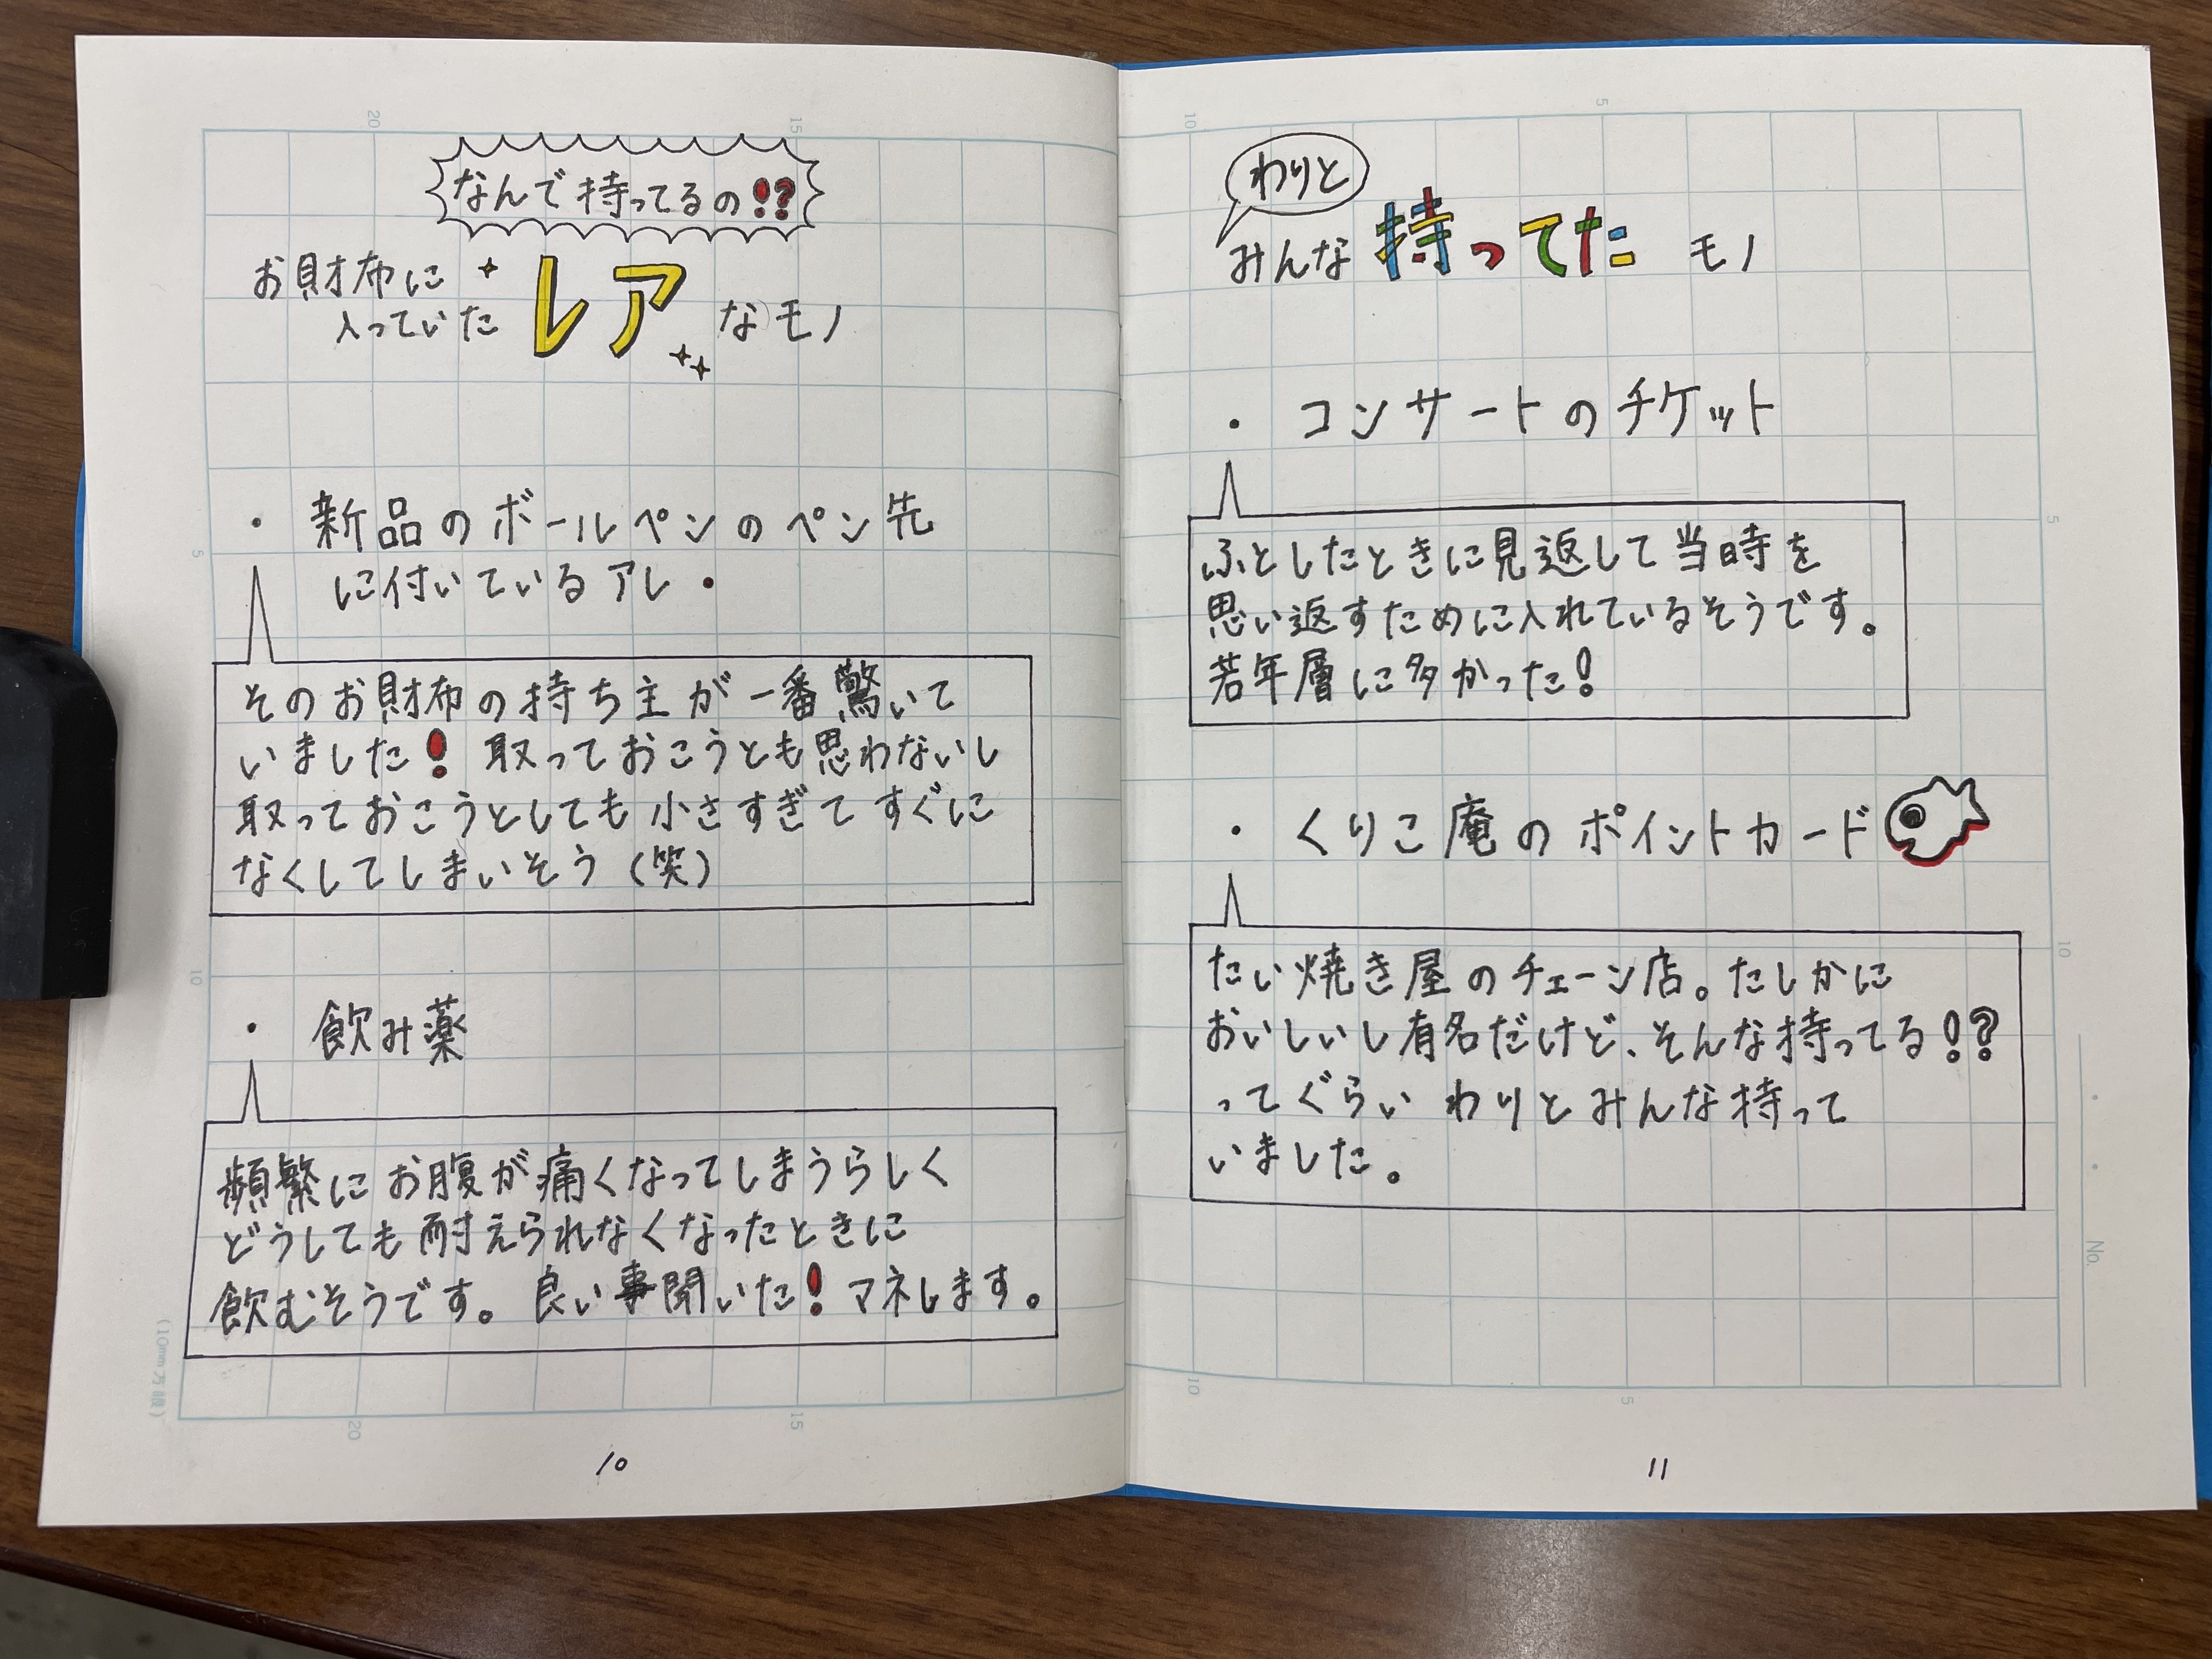 なんで持ってるの!?
お財布に
入っていた
レア
なモノ
・ 新品のボールペンのペン先
に付いているアレ・
そのお財布の持ち主が一番驚いて
いました! 取っておこうとも思わないし
取っておこうとしても小さすぎてすぐに
なくしてしまいそう(笑)
・ 飲み薬
頻繁にお腹が痛くなってしまうらしく
どうしても耐えられなくなったときに
飲むそうです。良い事聞いた! マネします。
10
わりと
みんな 持ってた モノ
・ コンサートのチケット
ふとしたときに見返して当時を
思い返すために入れているそうです。
若年層に多かった!
・ くりこ庵のポイントカード
たい焼き屋のチェーン店。たしかに
おいしいし有名だけど、そんな持ってる!?
ってぐらい わりとみんな持って
いました。
11
20
15
10
5
5
10
(10mm方眼)
20
15
10
5
5
10
No.